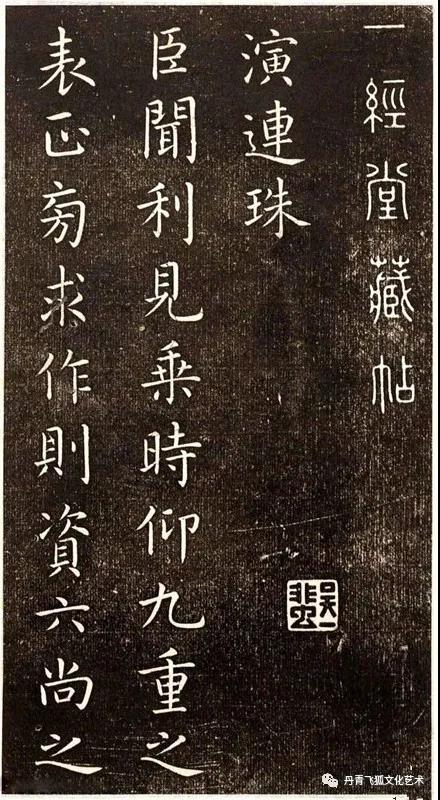 一經堂藏帖
演連珠
臣聞利見乗時仰九重之
表正旁求作則資六尚之
丹青飞狐文化艺术